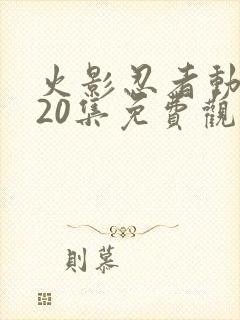 火影忍者動
20集免費觀
則慕